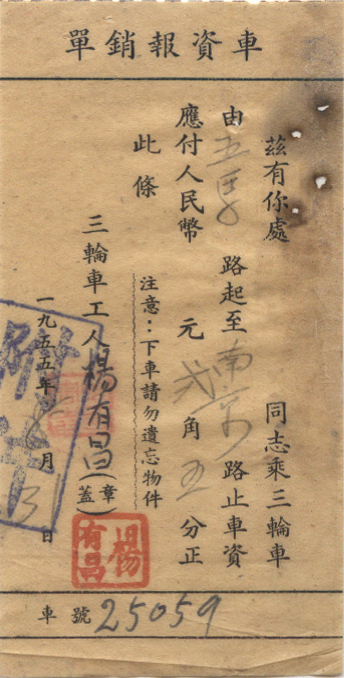 車資報銷單
茲有你處 同志乘三輪車
由五原路起至南京路止車資
應付人民幣 元弍角五分正
此條
注意：下車請勿遺忘物件
三輪車工人楊有昌(蓋章)
楊有昌
一九五五年8月31日
附件
車號 25059